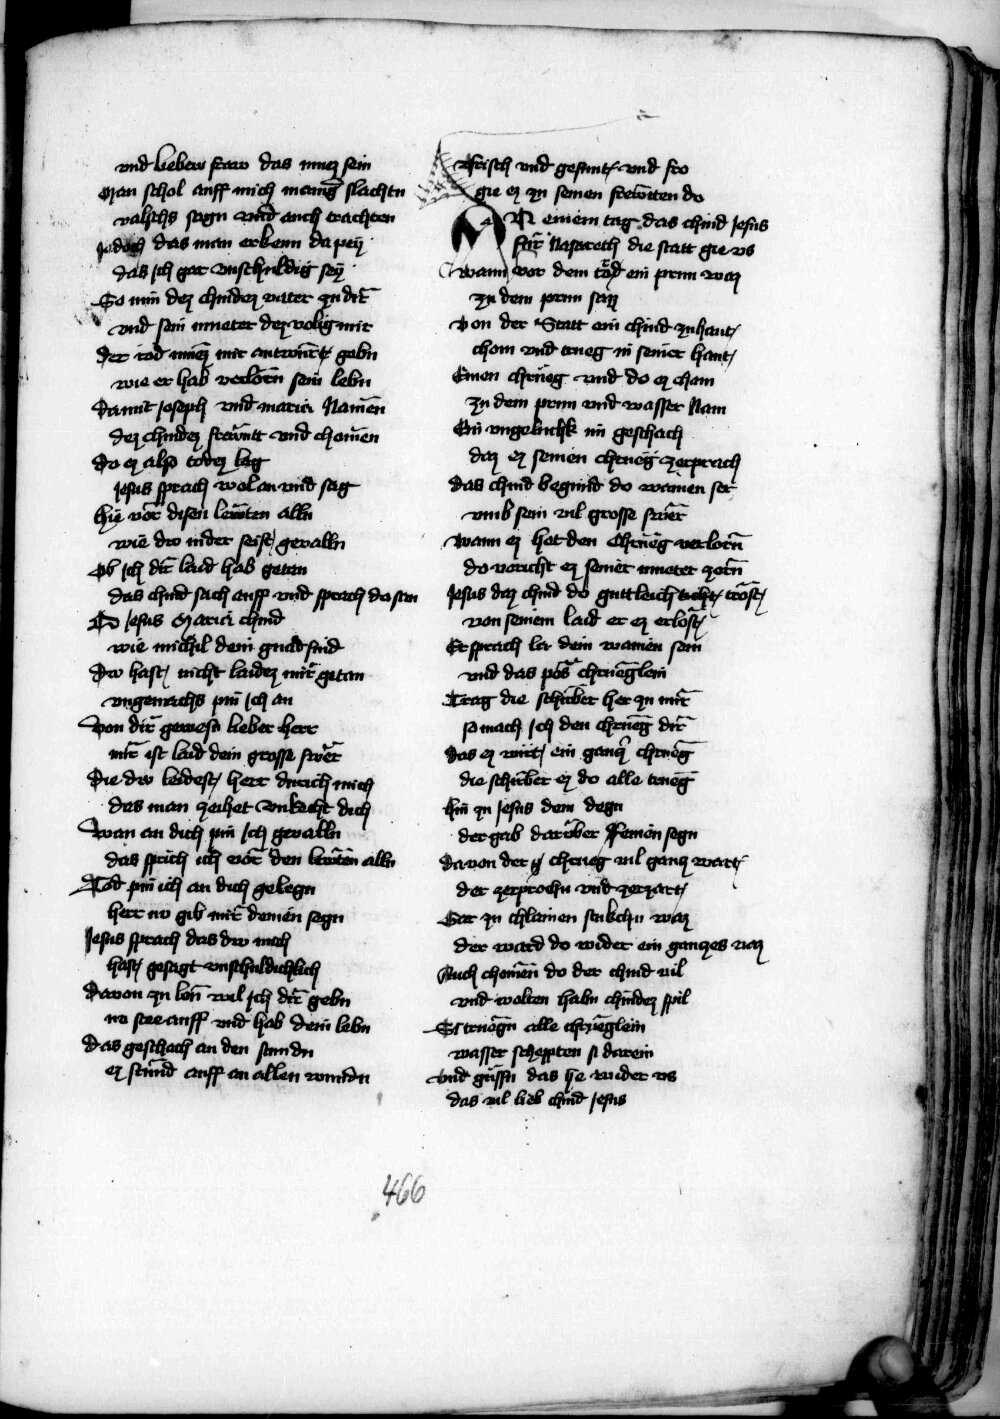 vnd liebew fraw das muez sein
Man schol auff mich maniḡ slachtn
valschs sagn vnd auch trachten
Jedoch das man erkenn da peÿ
das Jch gar vnschuldig seÿ
So nim dez chindez vater zu dir
vnd sein mueter dez volig mir
der tod muez mir antwurtt gebn
wie er hab verlorn sein lebn
Damit Joseph vnd maria Namen
dez chindez frewntt vnd chomen
Do ez also todez lag
Jesus sprach wol an vnd sag
hie vor disen lewten alln
wie dw nider seist gevalln
Ob Jch dir laid hab getan
das chind sach auff vnd sprach do san
O Jesus Maria chind
wie michil dein gnad sind
Dw hast nicht laidez mir getan
vngemachs pin Jch an
Von dir gewesn lieber herr
mir ist laid dein grosse swer
Die dw leidest herr durich mich
das man zeihet vnkecht dich
Wan an dich pin Jch gevalln
das sprich ich vor den lewten alln
Tod pin ich an dich gelegn
herr nv gib mir deinen segn
Jesus sprach das dw mich
hast gesagt vnschuldichlich
Davon zu lon wil Jch dir gebn
nv stee auff vnd hab dein lebn
Das geschach an den stundn
ez stund auff an allen wundn
Frisch vnd gesunt vnd fro
gie ez zu seinen frewnten do
An einem tag das chind Jesus
fur Nazareth die statt gie vs
Wann vor dem tor ein prun waz
zu dem prun saz
Von der Statt ein chind zuhant
chom vnd trueg in seiner hant
Einen chrueg vnd do ez cham
zu dem prun vnd wasser Nam
Ein vngeluchk im geschach
daz ez seinen chrueg zerprach
Das chind begund do wainen ser
vmb sein vil grosse swer
Wann ez het den Chrueg verlorn
do voricht ez seiner mueter zorn
Jesus daz chind do guttleich trost
von seinem laid er ez erlost
Er sprach la dein wainen sein
vnd das pos chrueglein
Trag die schirber her zu mir
so mach Jch den chrueg dir
Das ez wirt ein gancz chrueg
die schirber ez do alle trueg
hin zu Jesus dem degn
der gab daruber seinen segn
Davon der chrueg vil gancz wart
der zerprochn vnd zerzart
Gar zu chlainen stukchn waz
der ward do wider ein ganczes vaz
Auch chomen do der chind vil
vnd wolten habn chindez spil
Si truegn alle chrueglein
wasser schepften si darein
Vnd gussn das he wider vs
das vil lieb chind Jesus
466